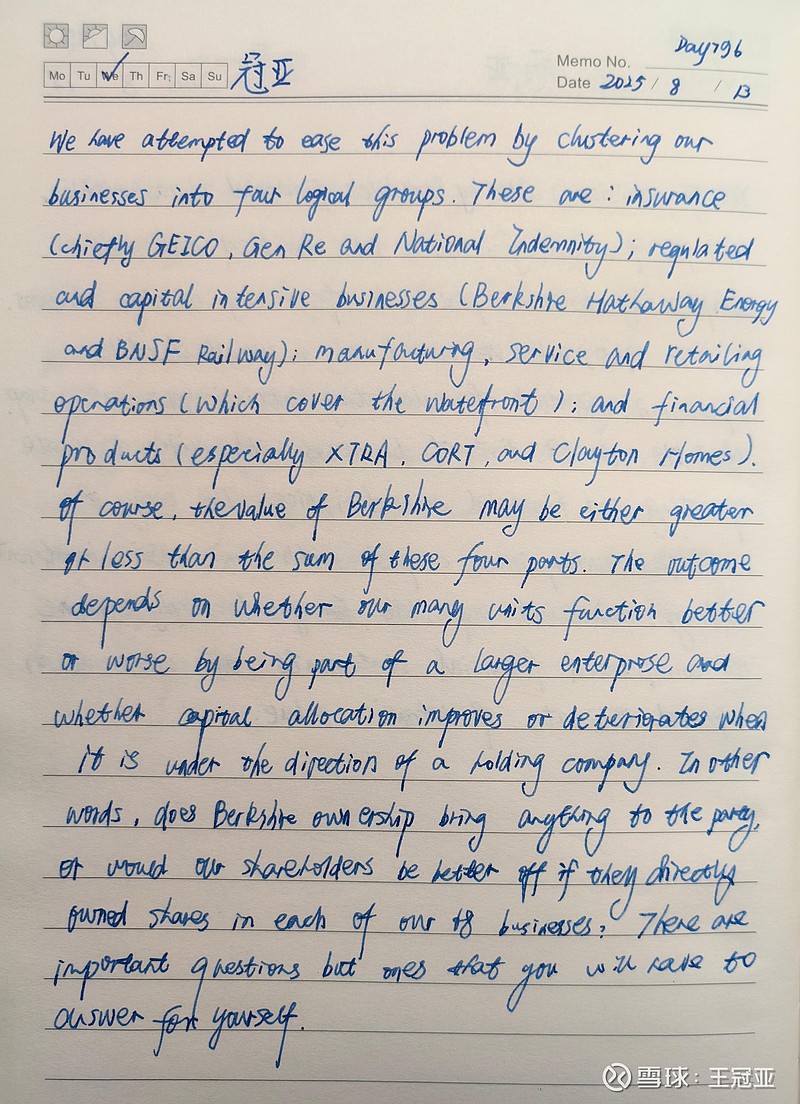 Mo Tu We Th Fr Sa Su 冠亚
Memo No. Day796
Date 2025 / 8 / 13
We have attempted to ease this problem by clustering our
businesses into four logical groups. These are : insurance
(chiefly GEICO, Gen Re and National Indemnity); regulated
and capital intensive businesses (Berkshire Hathaway Energy
and BNSF Railway); manufacturing, service and retailing
operations (which cover the waterfront); and financial
products (especially XTRA, CORT, and Clayton Homes).
Of course, the value of Berkshire may be either greater
or less than the sum of these four parts. The outcome
depends on whether our many units function better
or worse by being part of a larger enterprose and
whether capital allocation improves or deteriorates when
it is under the direction of a holding company. In other
words, does Berkshire ownership bring anything to the party,
or would our shareholders be better off if they directly
owned shares in each of our 78 businesses? There are
important questions but ones that you will have to
answer for yourself.
雪球：王冠亚